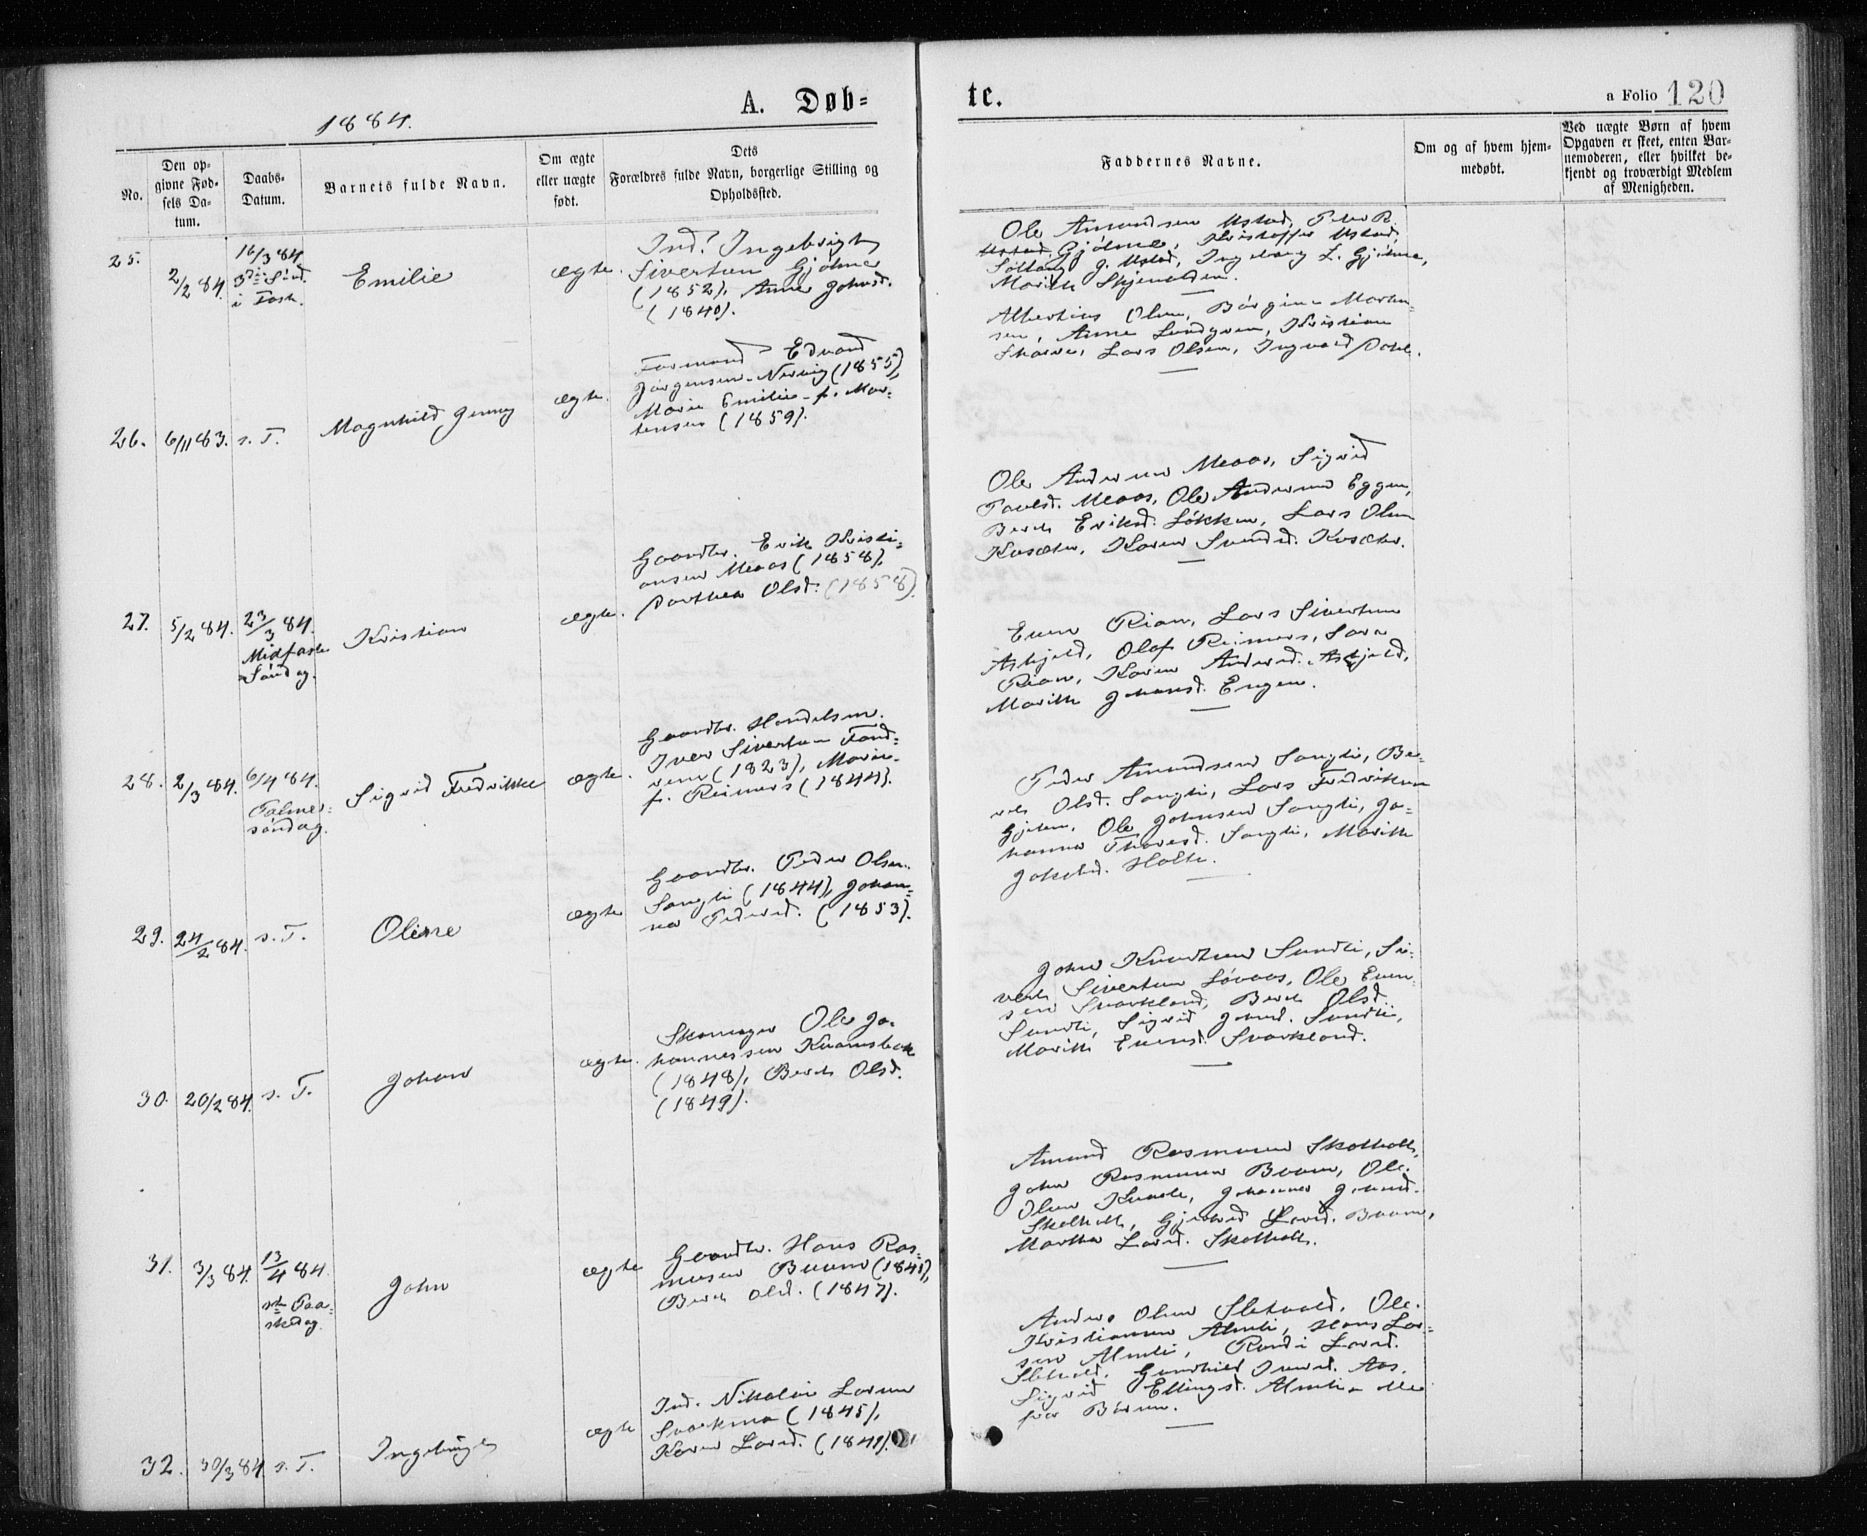 1884.
A. Døb-
te.
a Folio 120
No.
Den op-
givne Fød-
sels Da-
tum.
Daabs-
Datum.
Barnets fulde Navn.
Om ægte
eller uægte
født.
Dets
Forældres fulde Navn, borgerlige Stilling og
Opholdssted.
Faddernes Navne.
Om og af hvem hjem-
medøbt.
Ved uægte Børn af hvem
Opgaven er skeet, enten Bar-
nemoderen, eller hvilket be-
kjendt og troværdigt Medlem
af Menigheden.
25.
2/2 84.
16/3 84
3die Sønd.
i Fast.
Emilie
ægte.
Ind. Ingebrigt
Sivertsen Gjølme
(1852), Anne Johnsd.
(1840).
Ole Amundsen Ustad, Peter R.
Ustad Gjølme, Kristoffer Ustad,
J. Ustad, Ingeborg L. Gjølme,
Marith Skjenalden.
26.
6/11 83.
s. T.
Magnhild Jenny
ægte.
Formand Edvard
Jørgensen Nervig (1855),
Marie Emilie f. Mor-
tensen (1859).
Albertius Olsen, Bergine Morten-
sen, Anne Lundgren, Kristian
Skarre, Lars Olsen, Ingvald Dahl.
27.
5/2 84.
23/3 84.
Midfaste
Søndag.
Kristian
ægte.
Gaardbr. Erik Kristi-
ansen Meaas (1858),
Dorthea Olsd. (1858).
Ole Andersen Meaas, Sigrid
Paulsd. Meaas, Ole Andersen Eggen,
Berit Eriksd. Løkken, Lars Olsen
Kvæter, Karen Svendsd. Kvæter.
28.
2/3 84.
6/4 84.
Palme-
søndag.
Sigrid Fredrikke
ægte.
Gaardbr. Handelsm.
Iver Sivertsen Fand-
rem (1823), Marie
f. Reimers (1844).
Even Rian, Lars Sivertsen
Askjeld, Olaf Reimers, Sara
Rian, Karen Andersd. Askjeld,
Marith Johansd. Engen.
29.
24/2 84.
s. T.
Oline
ægte
Gaardbr. Peder Olsen
Songli (1844), Johan-
na Pedersd. (1853).
Peder Amundsen Songli, Be-
ret Olsd. Songli, Lars Fredriksen
Gjeten, Ole Johnsen Songli, Jo-
hanna Thoresd. Songli, Marith
Jakobsd. Holte.
30.
20/2 84.
s. T.
Johan
ægte.
Skomager Ole Jo-
hannessen Kvamsbak
(1848), Berit Olsd.
(1849).
John Knudsen Sundli, Si-
vert Sivertsen Løvaas, Ole Even-
sen Svorkland, Berit Olsd.
Sundli, Sigrid Johnsd. Sundli,
Marith Evensd. Svorkland.
31.
3/3 84.
13/4 84.
1ste Paa-
skedag.
John
ægte
Gaardbr. Hans Ras-
musen Buum (1841),
Berit Olsd. (1847).
Amund Rasmusen Skolholt,
John Rasmusen Buum, Ole
Olsen, Johanna Johnsd.
Skolholt, Gjertrud Larsd. Buum,
Martha Larsd. Skolholt.
32.
30/3 84
s. T.
Ingebrigt
ægte
Ind. Nikolai Larsen
Svorkmo (1845),
Karen Larsd. (1849).
Anders Olsen Sletvold, Ole
Kristiansen Almli, Hans Lar-
sen Almli, Randi Larsd.
Sletvold, Gunhild Iversd. Aas,
Sigrid Ellingsd. Almli
for Børsen.